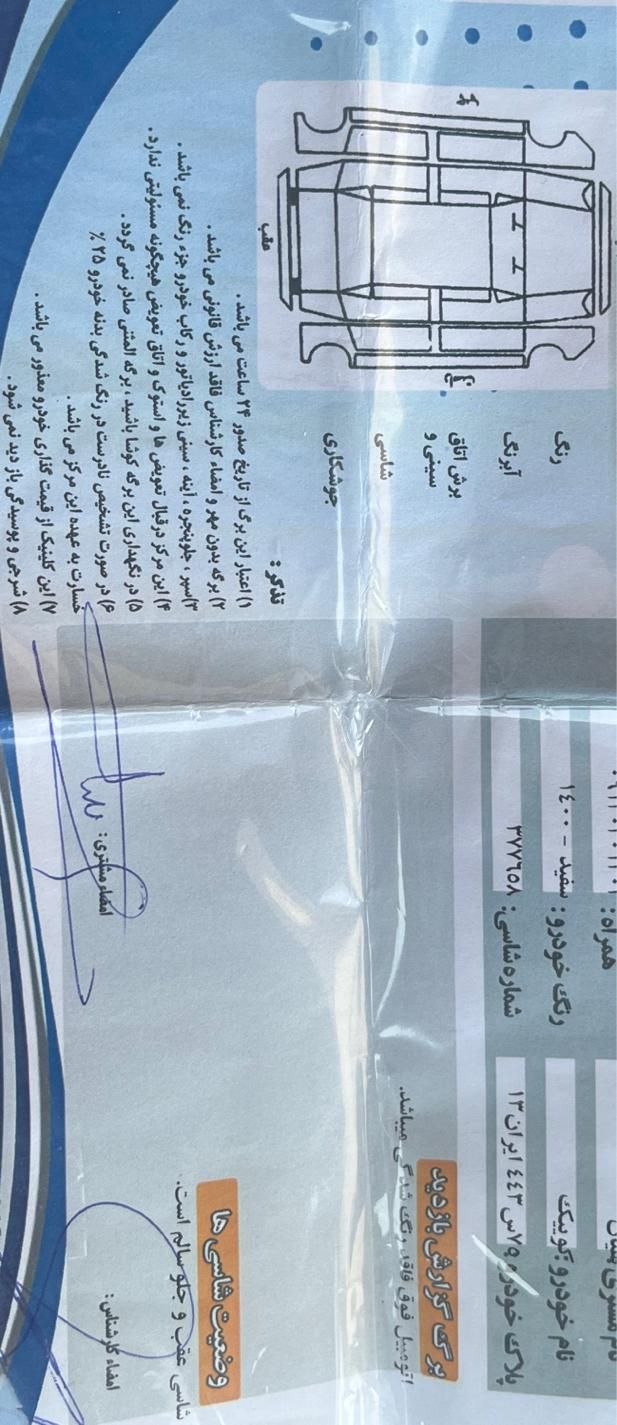 همراه:
نام خودرو: کوییک
رنگ خودرو: سفید - ۱۴۰۰
پلاک خودرو: ۷۹س ۴۴۳ ایران ۱۳
شماره شاسی: ۳۷۷۶۵۸
برگ گزارش بازدید
اتومبیل فوق فاقد رنگ شدگی میباشد.
وضعیت شاسی ها
شاسی عقب و جلو سالم است.
امضاء کارشناس:
امضاء مشتری:
رنگ
آبرنگ
سینی و
برش اتاق
شاسی
جوشکاری
عقب
تذکر :
۱) اعتبار این برگ از تاریخ صدور ۲۴ ساعت می باشد.
۲) برگه بدون مهر و امضاء کارشناس فاقد ارزش قانونی می باشد.
۳) سپر ، جلوپنجره ، آینه ، سینی زیر رادیاتور و رکاب خودرو جزء رنگ نمی باشد.
۴) این مرکز در قبال تعویض ها و استوک و اتاق تعویض هیچگونه مسئولیتی ندارد.
۵) در نگهداری این برگه کوشا باشید ، برگه المثنی صادر نمی گردد.
۶) در صورت تشخیص نادرست در رنگ شدگی بدنه خودرو ۲۵ %
خسارت به عهده این مرکز می باشد.
۷) این کلینیک از قیمت گذاری خودرو معذور می باشد.
۸) شرجی و پوسیدگی بازدید نمی شود.